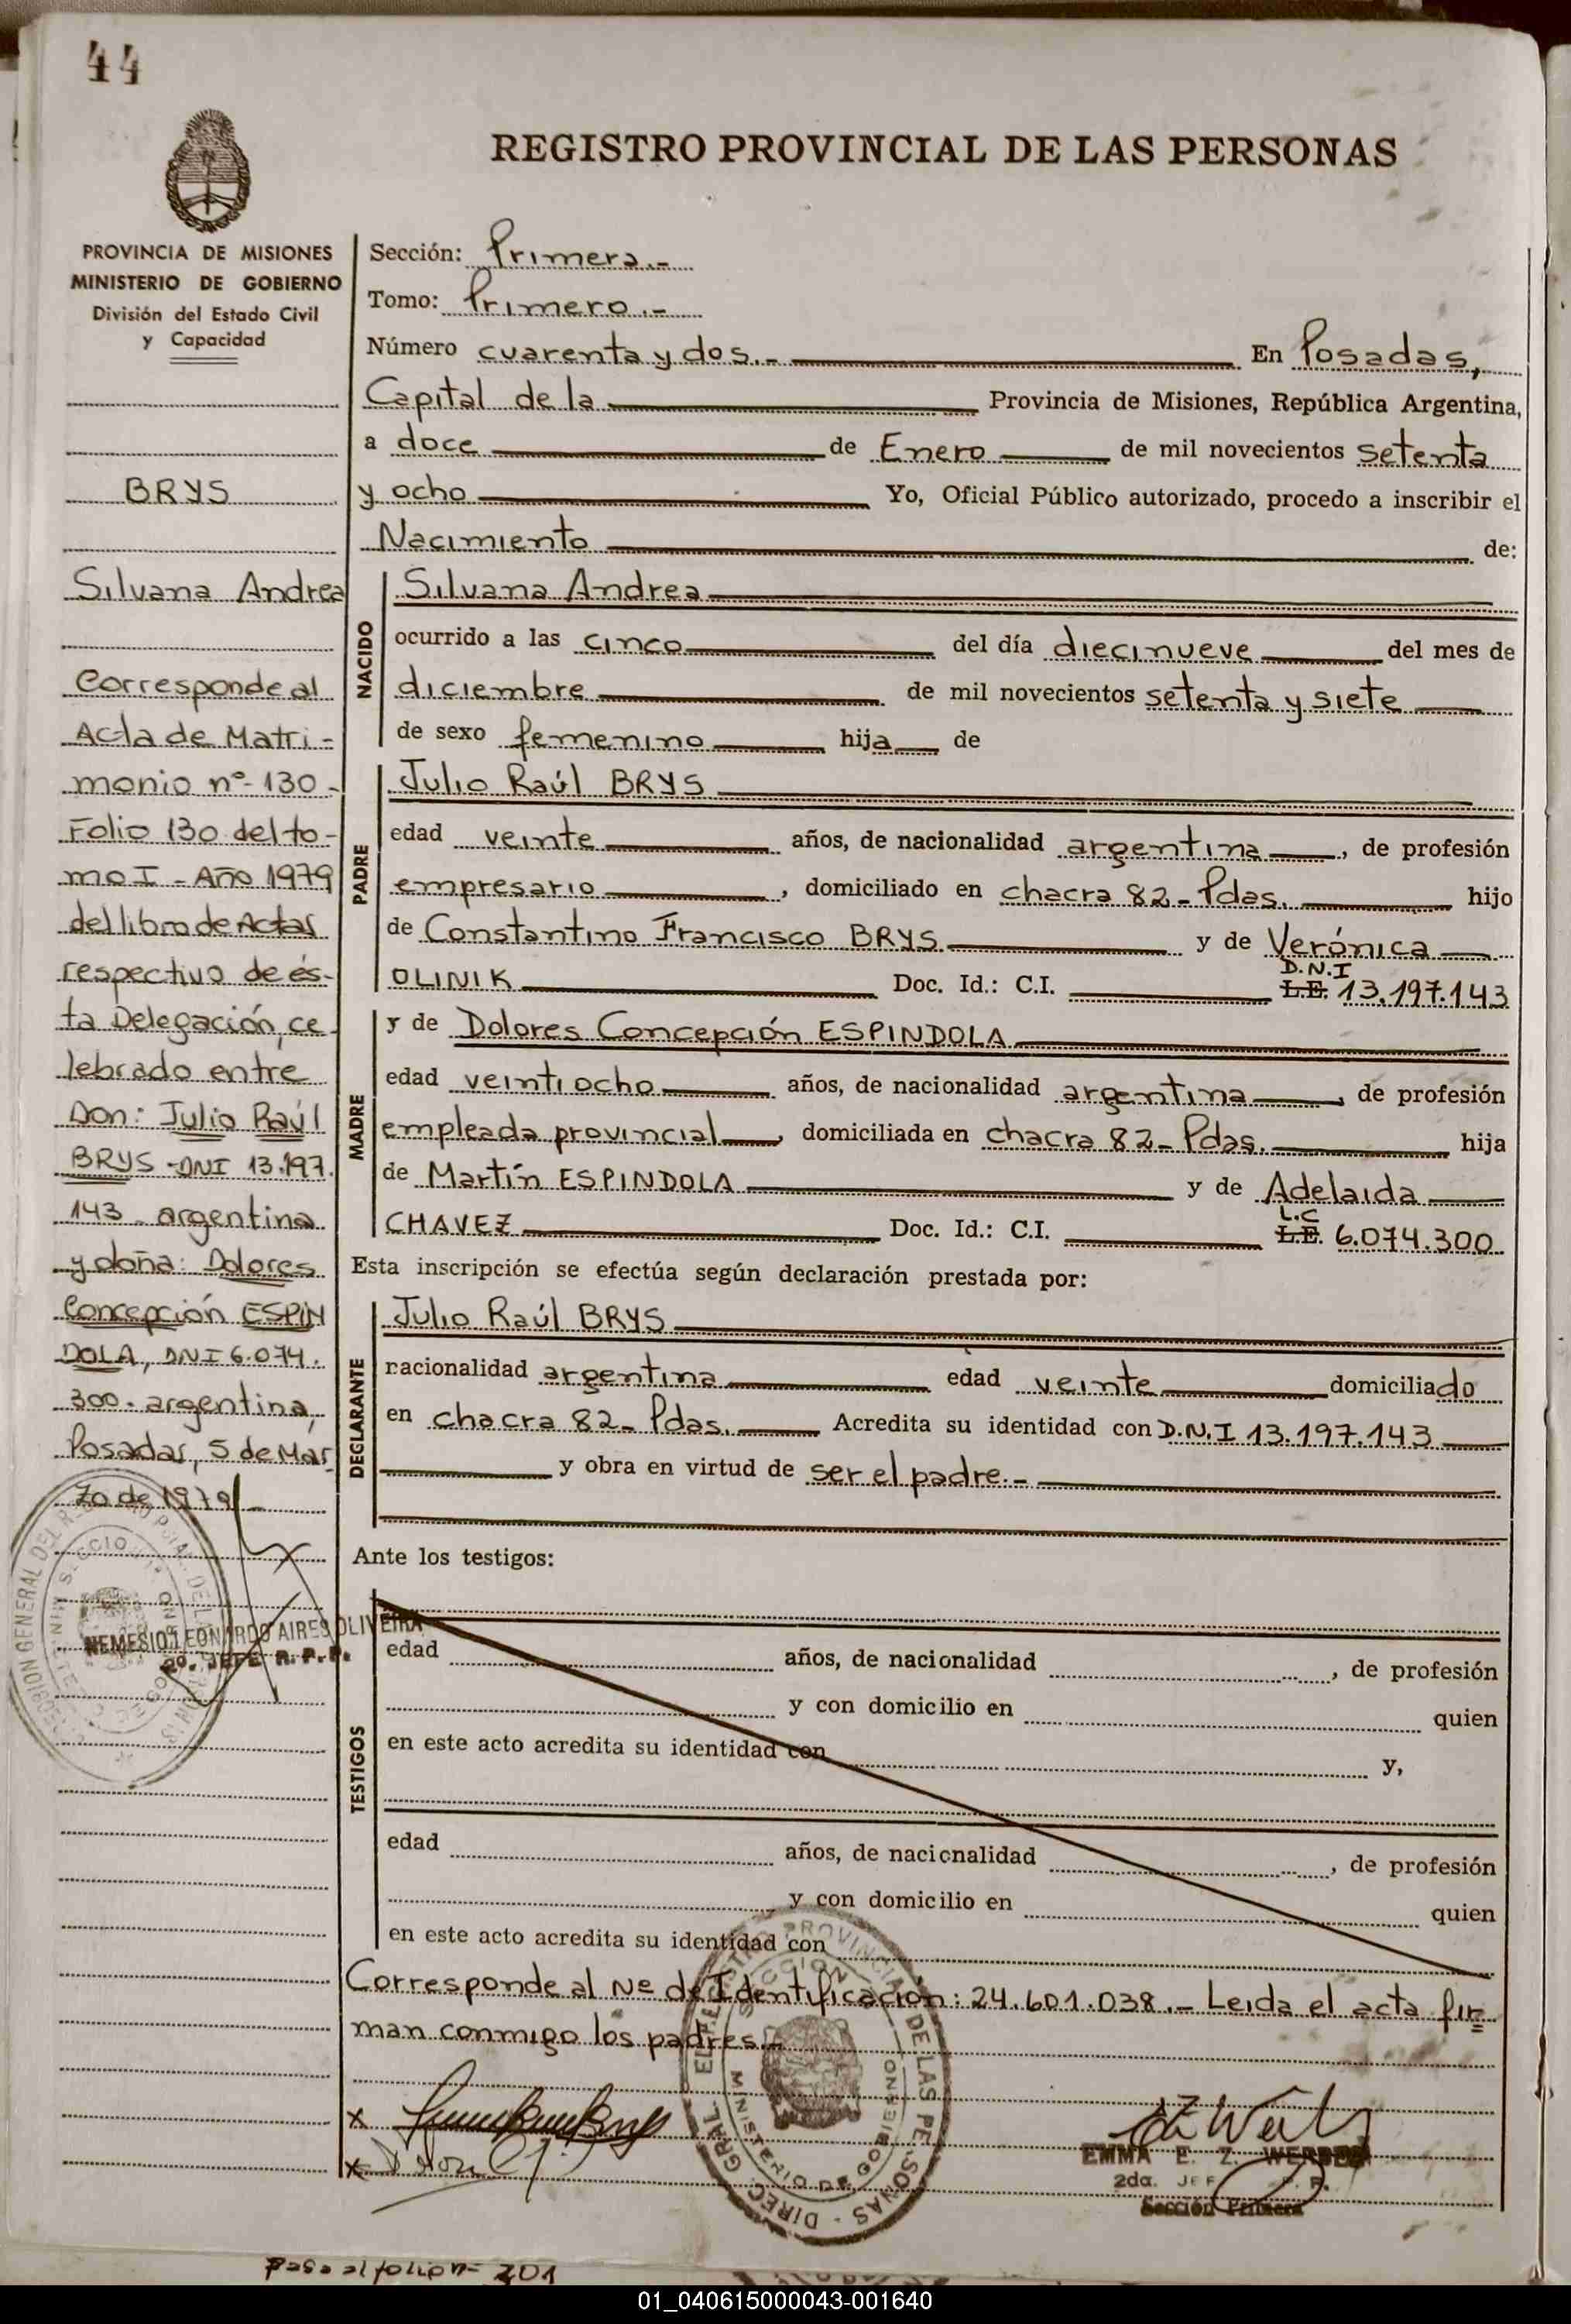 44
REGISTRO PROVINCIAL DE LAS PERSONAS
PROVINCIA DE MISIONES
MINISTERIO DE GOBIERNO
División del Estado Civil
y Capacidad
BRYS
Silvana Andrea
Corresponde al
Acta de Matri-
monio nº 130-
Folio 130 del to-
mo I - Año 1979
del libro de Actas
respectivo de és-
ta Delegación, ce-
lebrado entre
Don: Julio Raúl
BRYS - DNI 13.197.
143 - argentina
y doña: Dolores
Concepción ESPIN
DOLA, DNI 6.074.
300 - argentina,
Posadas, 5 de Mar
zo de 1979 -
NEMESIO LEONARDO AIRES OLIVEIRA
2º. JEFE R. P. P.
Sección: Primera.-
Tomo: Primero.-
Número cuarenta y dos.- En Posadas,
Capital de la Provincia de Misiones, República Argentina,
a doce de Enero de mil novecientos setenta
y ocho Yo, Oficial Público autorizado, procedo a inscribir el
Nacimiento de:
NACIDO
Silvana Andrea
ocurrido a las cinco del día diecinueve del mes de
diciembre de mil novecientos setenta y siete
de sexo femenino hija de
PADRE
Julio Raúl BRYS
edad veinte años, de nacionalidad argentina, de profesión
empresario, domiciliado en chacra 82 - Pdas. hijo
de Constantino Francisco BRYS y de Verónica
D.N.I
OLINIK Doc. Id.: C.I. L.E. 13.197.143
MADRE
y de Dolores Concepción ESPINDOLA
edad veintiocho años, de nacionalidad argentina, de profesión
empleada provincial, domiciliada en chacra 82 - Pdas. hija
de Martín ESPINDOLA y de Adelaida
L.C
CHAVEZ Doc. Id.: C.I. L.E. 6.074.300
Esta inscripción se efectúa según declaración prestada por:
DECLARANTE
Julio Raúl BRYS
nacionalidad argentina edad veinte domiciliado
en chacra 82 - Pdas. Acredita su identidad con D.N.I 13.197.143
y obra en virtud de ser el padre.-
Ante los testigos:
TESTIGOS
edad años, de nacionalidad , de profesión
y con domicilio en quien
en este acto acredita su identidad con y,
edad años, de nacionalidad , de profesión
y con domicilio en quien
en este acto acredita su identidad con
Corresponde al Nº de Identificación: 24.601.038.- Leida el acta fir=
man conmigo los padres.-
x
x
EMMA E. Z. WERBES
2da. JEF P.
Sección Primera
MINISTERIO DE GOBIERNO
Pasa al folio nº 201
01_040615000043-001640